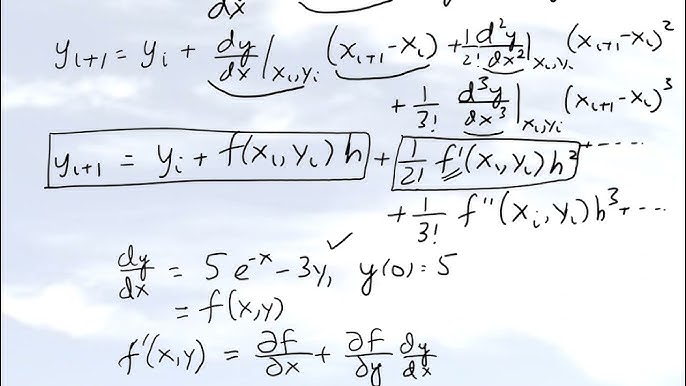 dx
y_{i+1} = y_i + dy/dx|_{x_i,y_i} (x_{i+1}-x_i) + 1/2! d²y/dx²|_{x_i,y_i} (x_{i+1}-x_i)²
+ 1/3! d³y/dx³|_{x_i,y_i} (x_{i+1}-x_i)³
y_{i+1} = y_i + f(x_i,y_i) h + 1/2! f'(x_i,y_i) h² + ----
+ 1/3! f''(x_i,y_i) h³ + ---
dy/dx = 5e^{-x} - 3y, y(0) = 5
= f(x,y)
f'(x,y) = ∂f/∂x + ∂f/∂y dy/dx